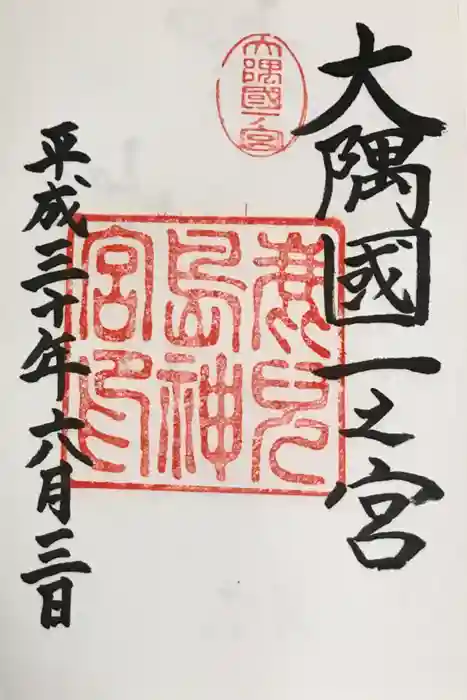 大隅國一之宮
大隅國一ノ宮
鹿兒
島神
宮印
平成三十年六月三日